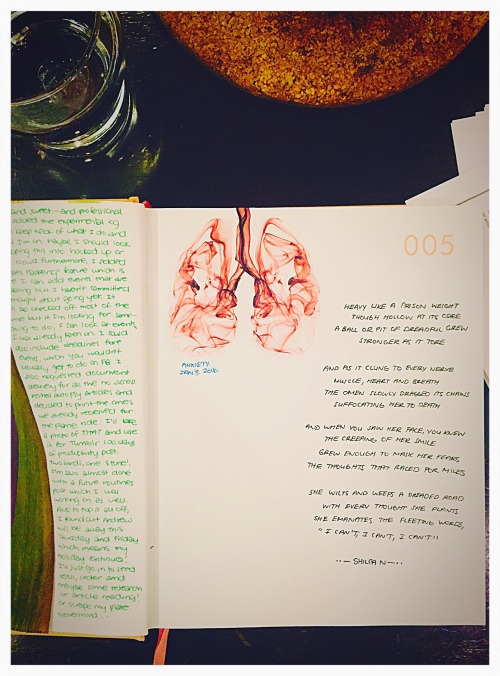 and sweet - and professional.
the experimental log
keep track of what I do and
I'm in. Maybe I should look
this into backed up or
cloud. Furthermore, I added
feature which is
I can add events that are
but I haven't committed
thought about going yet. It
be checked off most of the
but if I'm looking for some-
to do, I can look at events
I was already keen on. I could
also include deadlines for
events, which you wouldn't
usually get to do on FB. I
also requested document
delivery for all the no access
and
decided to print the ones
we already received for
the plane ride. I'll take
a photo of THAT and use
it for Tumblr 100 days
of productivity post.
Two birds, one stone!
I'm also almost done
with a future routines
post which I was
working on as well.
And to top it all off,
I found out Andrew
will be away this
Thursday and Friday
which means my
holiday continues!
I'll just go in to feed
cells, order and
maybe some research
or article reading!
Or scrape my plate.
Nevermind...
ANXIETY
JAN 5, 2016.
005
HEAVY LIKE A PRISON WEIGHT
THOUGH HOLLOW AT ITS CORE
A BALL OR PIT OF DREADFUL GREW
STRONGER AS IT TORE
AND AS IT CLUNG TO EVERY NERVE
MUSCLE, HEART AND BREATH
THE OMEN SLOWLY DRAGGED ITS CHAINS
SUFFOCATING HER TO DEATH
AND WHEN YOU SAW HER FACE, YOU KNEW
THE CREEPING OF HER SMILE
GREW ENOUGH TO MASK HER FEARS
THE THOUGHTS THAT RACED FOR MILES
SHE WILTS AND WEEPS A DREADED ROAD
WITH EVERY THOUGHT SHE PLANTS
SHE EMANATES THE FLEETING WORDS,
"I CAN'T, I CAN'T, I CAN'T"
··—SHILPA N—··